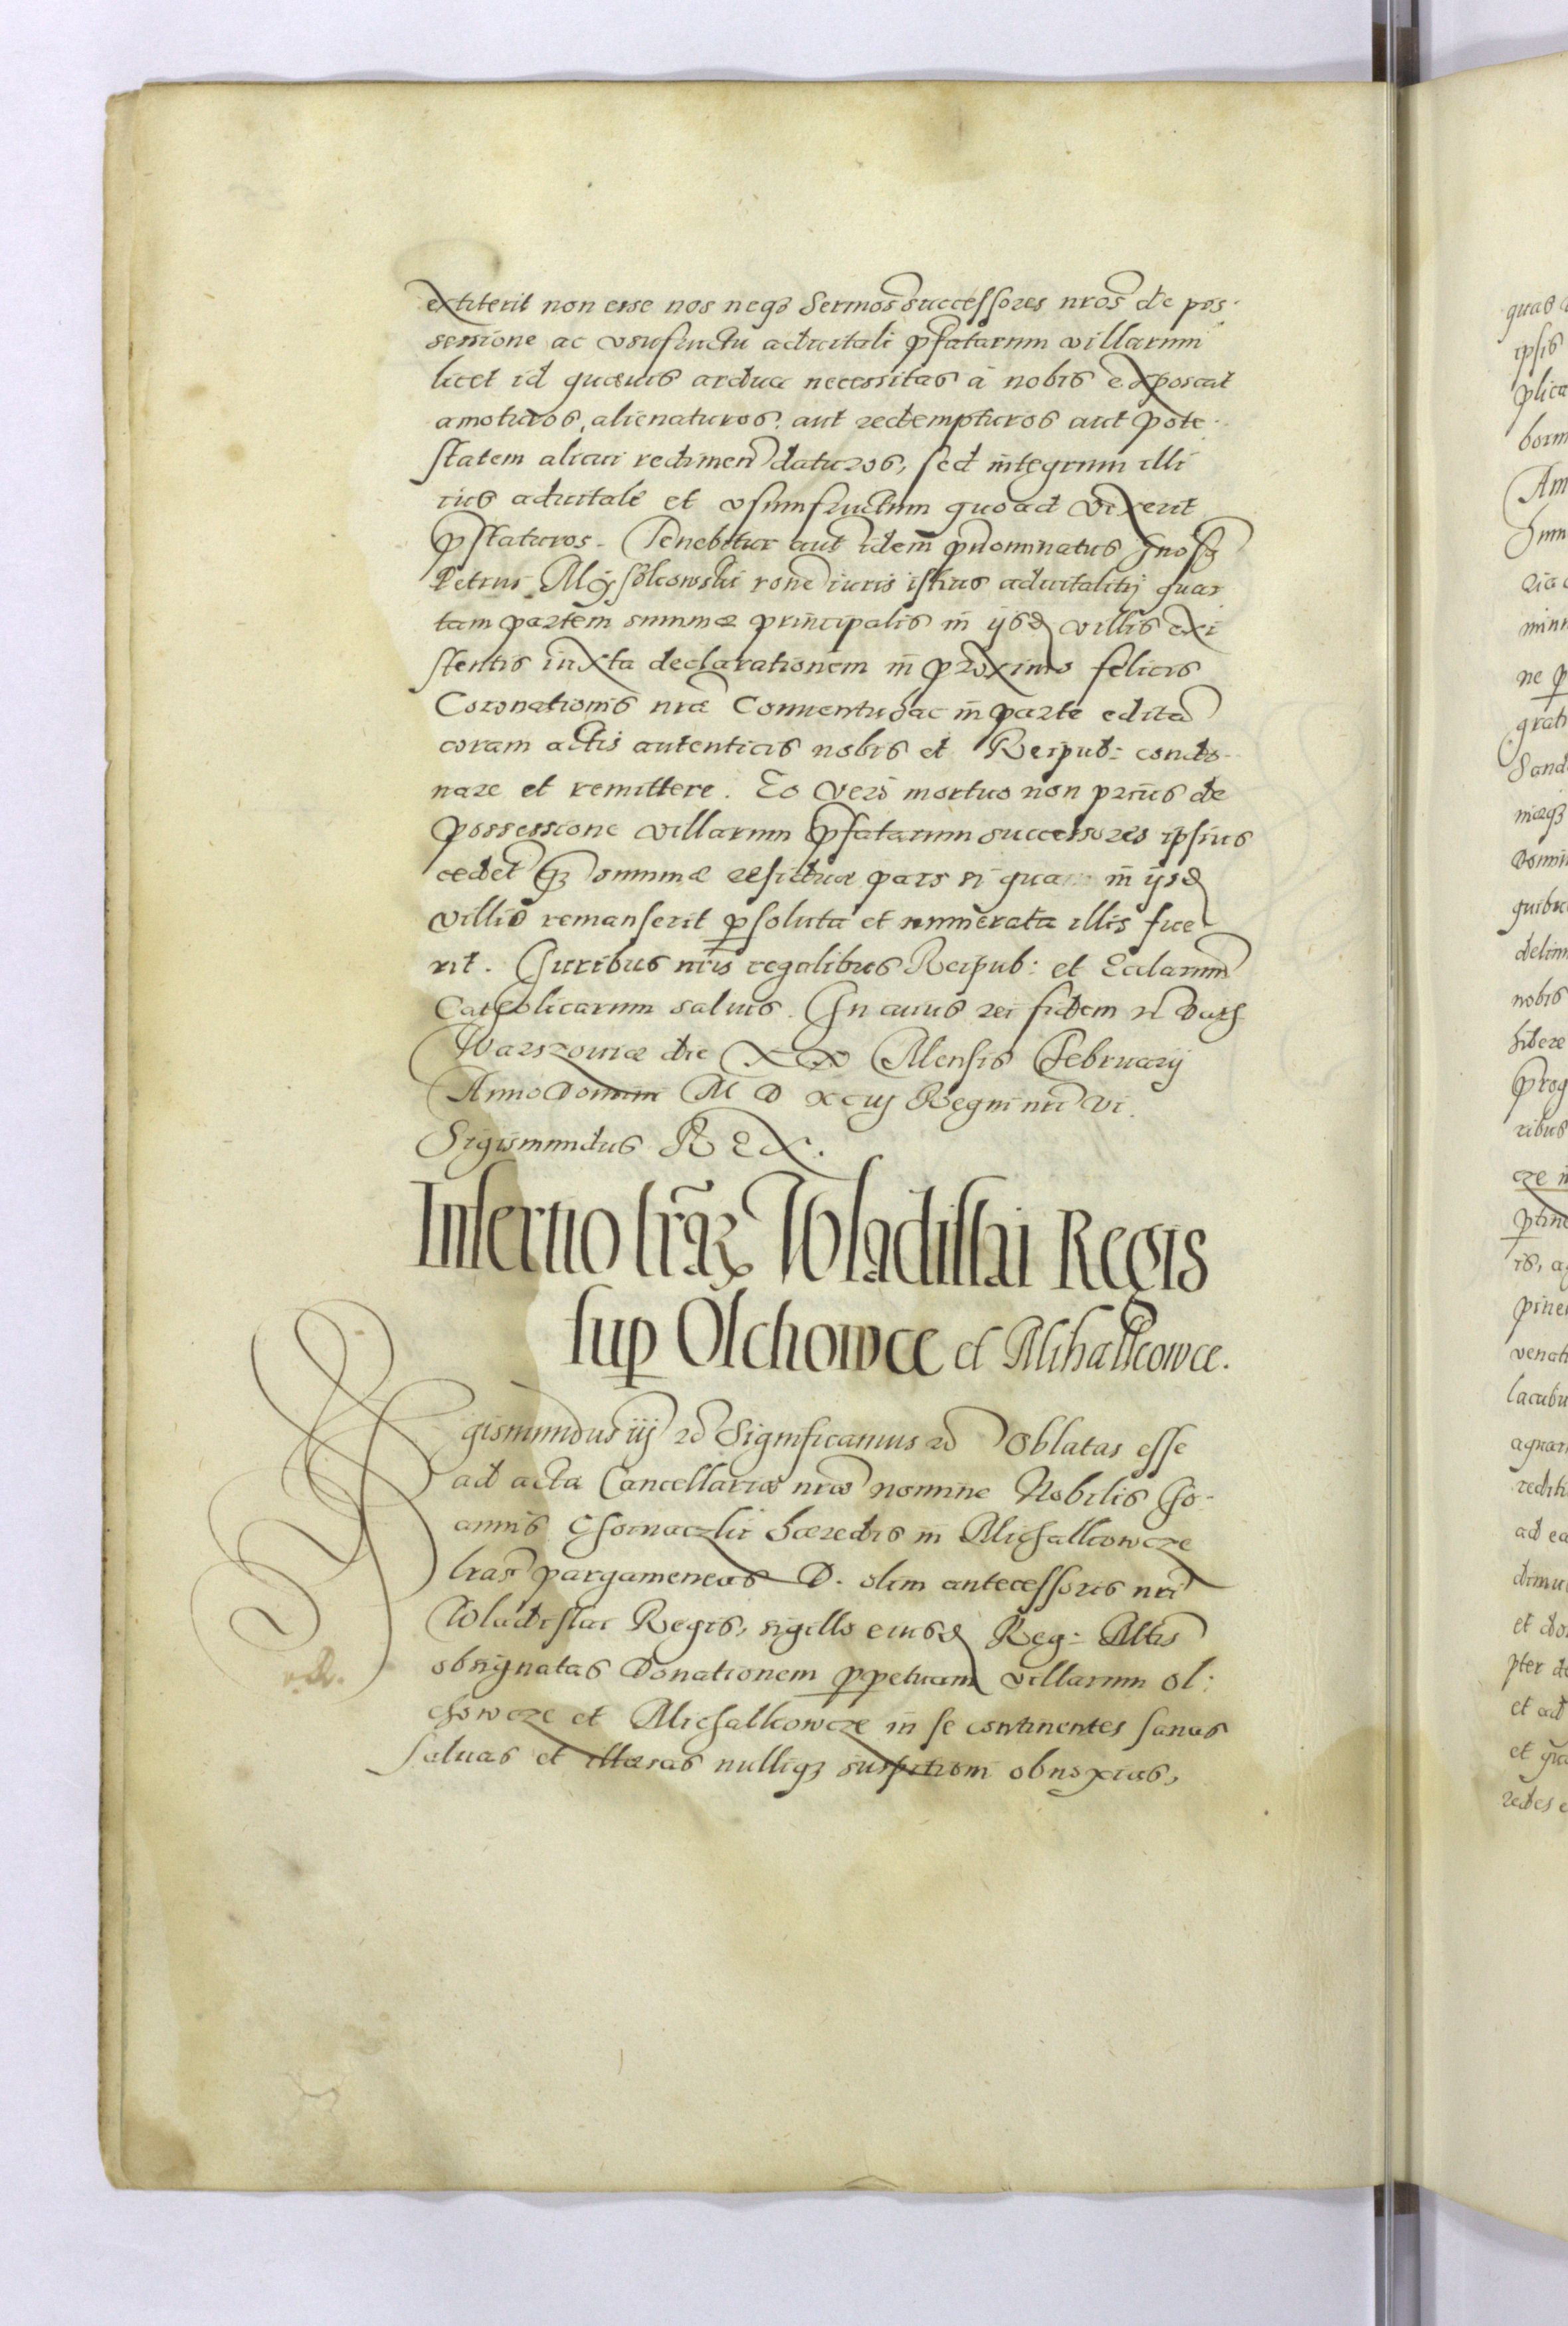 extiterit non esse nos neqꝫ Sermos successores nros de pos-
sessione ac vsufructu aduitali pfatarum villarum
licet id quæuis ardua necessitas à nobis exposcat
amoturos, alienaturos, aut redempturos aut pote-
statem alicui redimen daturos, sed integrum illi
ius aduitale et vsumfructum quoad vixerit
pstaturos. Tenebitur aut idem pnominatus Gnosꝫ
Petrus Myssolcowski rone iuris istius aduitalitij quar
tam partem summæ principalis in ijsd villis exi
stentis iuxta declarationem in proximo felicis
Coronationis nræ Conuentu hac in parte editã
coram actis autenticis nobis et Reipub: condo-
nare et remittere. Eo verò mortuo non prius de
possessione villarum pfatarum successores ipsius
cedet qꝫ summæ residua pars si qua in ijsd
villis remanserit psoluta et numerata illis fue
rit. Iuribus nris regalibus Reipub: et Ecclarum
Catholicarum saluis. In cuius rei fidem rc̃ Dat
Warszouiæ die XX Mensis Februarij
Anno Domini M D xciij Regni nri vi.
Sigismundus Rex.
Insertio lrãꝝ Wladislai Regis
sup Olchowce et Mihalkowce.
Sigismundus iij rc̃ Significamus rc̃ Oblatas esse
ad acta Cancellariæ nræ nomine Nobilis Io-
annis hæredis in Michalkowcze
lras pargameneas D. olim antecessoris nri
Wladislai Regis, sigillo eiusd Reg: Mtis
obsignatas Donationem ppetuam villarum Ol:
chowcze et Michalkowcze in se continentes sanas
saluas et illæsas nulliqꝫ suspitioni obnoxias,